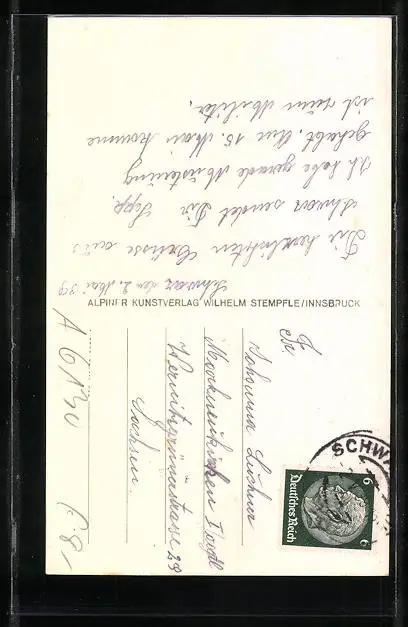 Schwaz den 2. Mai 39
Die herzlichsten Grüsse aus
Schwaz sendet Dir Sepp.
Ich habe gerade Musterung
gehabt. Am 15. Mai komme
ich zum Militär.
ALPINER KUNSTVERLAG WILHELM STEMPFLE/INNSBRUCK
Johanna
Markneukirchen Vogtl
Wernitzgrünerstrasse 29
Sachsen.
SCHWA
6 6
Deutsches Reich